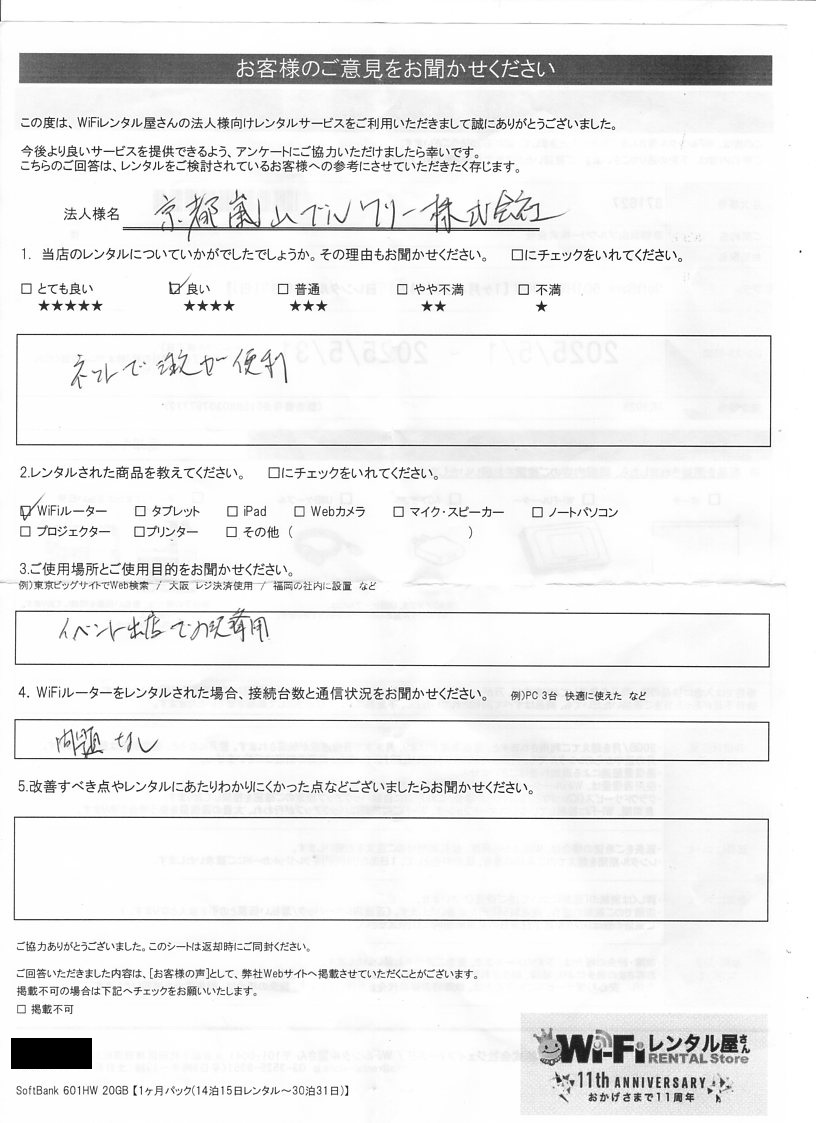 お客様のご意見をお聞かせください
この度は、WiFiレンタル屋さんの法人様向けレンタルサービスをご利用いただきまして誠にありがとうございました。
今後より良いサービスを提供できるよう、アンケートにご協力いただけましたら幸いです。
こちらのご回答は、レンタルをご検討されているお客様への参考にさせていただきたく存じます。
法人様名 京都嵐山ブルワリー株式会社
1. 当店のレンタルについていかがでしたでしょうか。その理由もお聞かせください。 □にチェックをいれてください。
□ とても良い ☑ 良い □ 普通 □ やや不満 □ 不満
★★★★★ ★★★★ ★★★ ★★ ★
ネットで 便利
2.レンタルされた商品を教えてください。 □にチェックをいれてください。
☑ WiFiルーター □ タブレット □ iPad □ Webカメラ □ マイク・スピーカー □ ノートパソコン
□ プロジェクター □プリンター □ その他 ( )
3.ご使用場所とご使用目的をお聞かせください。
例)東京ビッグサイトでWeb検索 / 大阪 レジ決済使用 / 福岡の社内に設置 など
イベント出店での
4. WiFiルーターをレンタルされた場合、接続台数と通信状況をお聞かせください。 例)PC 3台 快適に使えた など
問題なし
5.改善すべき点やレンタルにあたりわかりにくかった点などございましたらお聞かせください。
ご協力ありがとうございました。このシートは返却時にご同封ください。
ご回答いただきました内容は、[お客様の声]として、弊社Webサイトへ掲載させていただくことがございます。
掲載不可の場合は下記へチェックをお願いいたします。
□ 掲載不可
Wi-Fiレンタル屋さん
RENTAL Store
11th ANNIVERSARY
おかげさまで11周年
SoftBank 601HW 20GB【1ヶ月パック(14泊15日レンタル～30泊31日)】